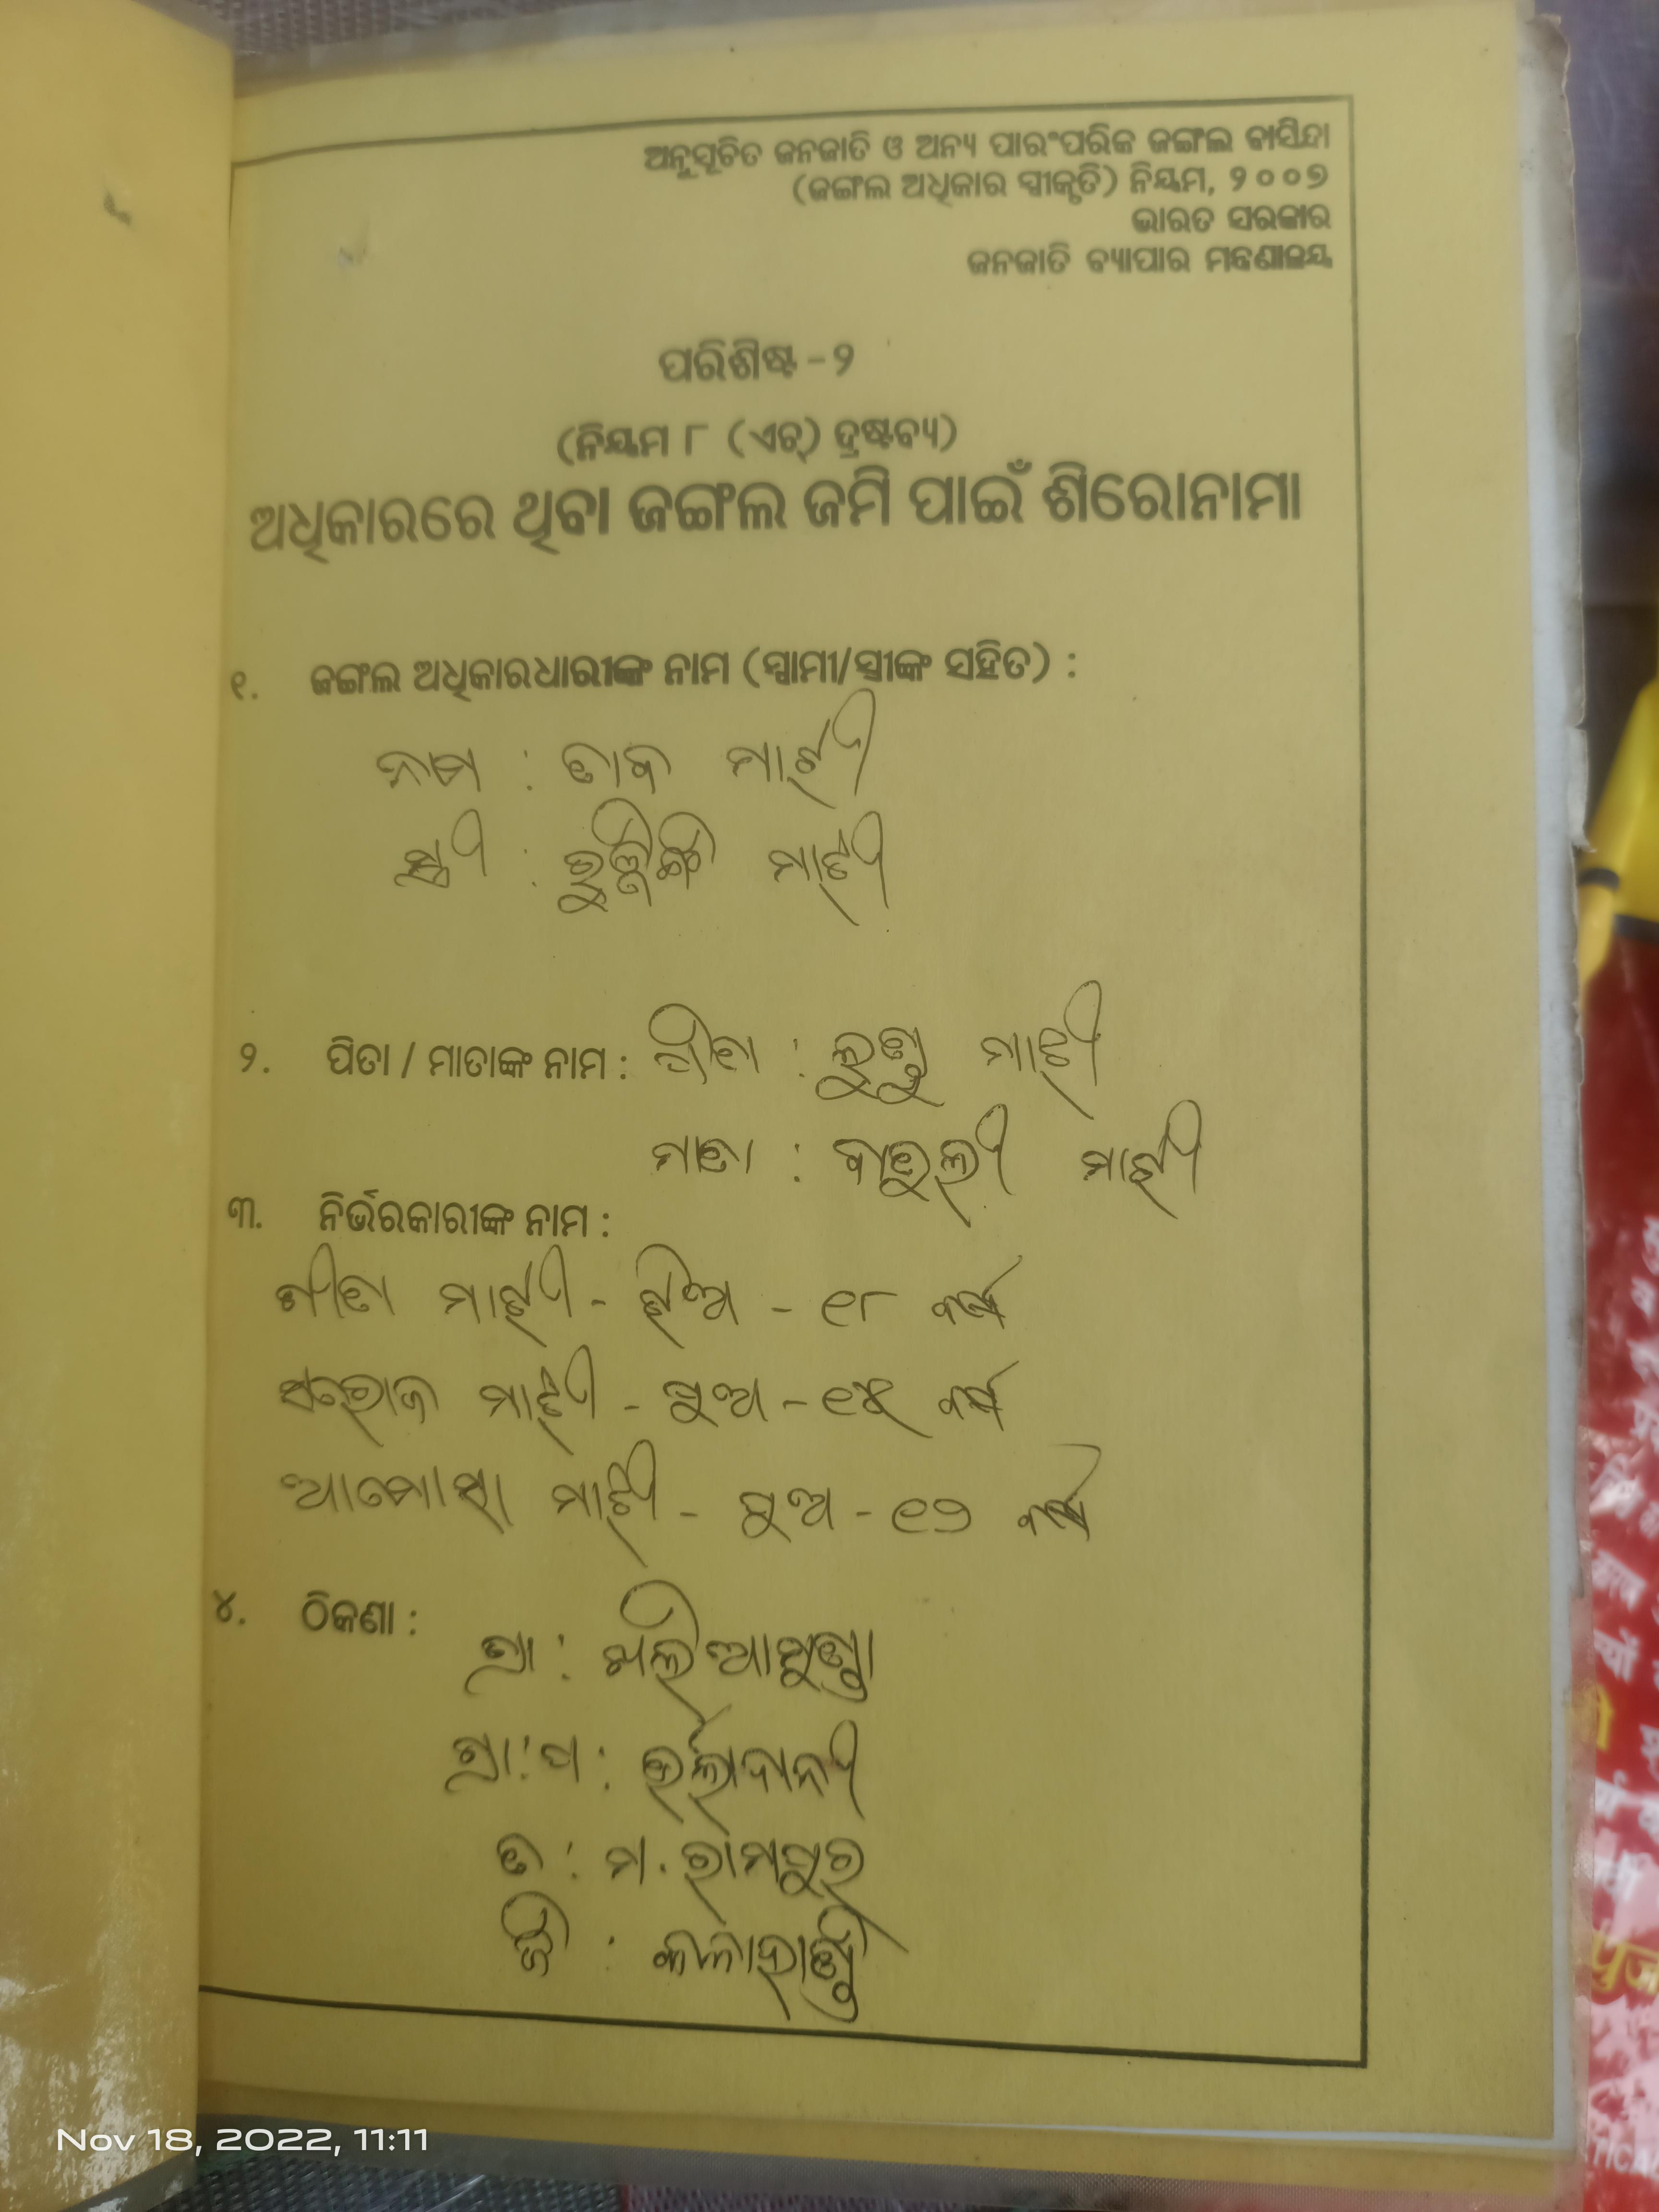 ଅନୁସୂଚିତ ଜନଜାତି ଓ ଅନ୍ୟ ପାରଂପରିକ ଜଙ୍ଗଲ ବାସିନ୍ଦା
(ଜଙ୍ଗଲ ଅଧିକାର ସ୍ୱୀକୃତି) ନିୟମ, ୨୦୦୭
ଭାରତ ସରକାର
ଜନଜାତି ବ୍ୟାପାର ମନ୍ତ୍ରଣାଳୟ
ପରିଶିଷ୍ଟ - ୨
(ନିୟମ ୮ (ଏଚ୍) ଦ୍ରଷ୍ଟବ୍ୟ)
ଅଧିକାରରେ ଥିବା ଜଙ୍ଗଲ ଜମି ପାଇଁ ଶିରୋନାମା
୧. ଜଙ୍ଗଲ ଅଧିକାରଧାରୀଙ୍କ ନାମ (ସ୍ୱାମୀ/ସ୍ତ୍ରୀଙ୍କ ସହିତ) :
ନାମ : ମାଝୀ
ସ୍ତ୍ରୀ : ମାଝୀ
୨. ପିତା / ମାତାଙ୍କ ନାମ : ପିତା : ମାଝୀ
ମାତା : ମାଝୀ
୩. ନିର୍ଭରକାରୀଙ୍କ ନାମ :
ଗୀତା ମାଝୀ - ଝିଅ - ୧୮ ବର୍ଷ
ସରୋଜ ମାଝୀ - ପୁଅ - ୧୫ ବର୍ଷ
ମାଝୀ - ପୁଅ - ୧୨ ବର୍ଷ
୪. ଠିକଣା :
ଗ୍ରା : ଖଲିଆମୁଣ୍ଡା
ଗ୍ରା:ପ :
ତ : ମ. ରାମପୁର
ଜି : କଳାହାଣ୍ଡି
Nov 18, 2022, 11:11